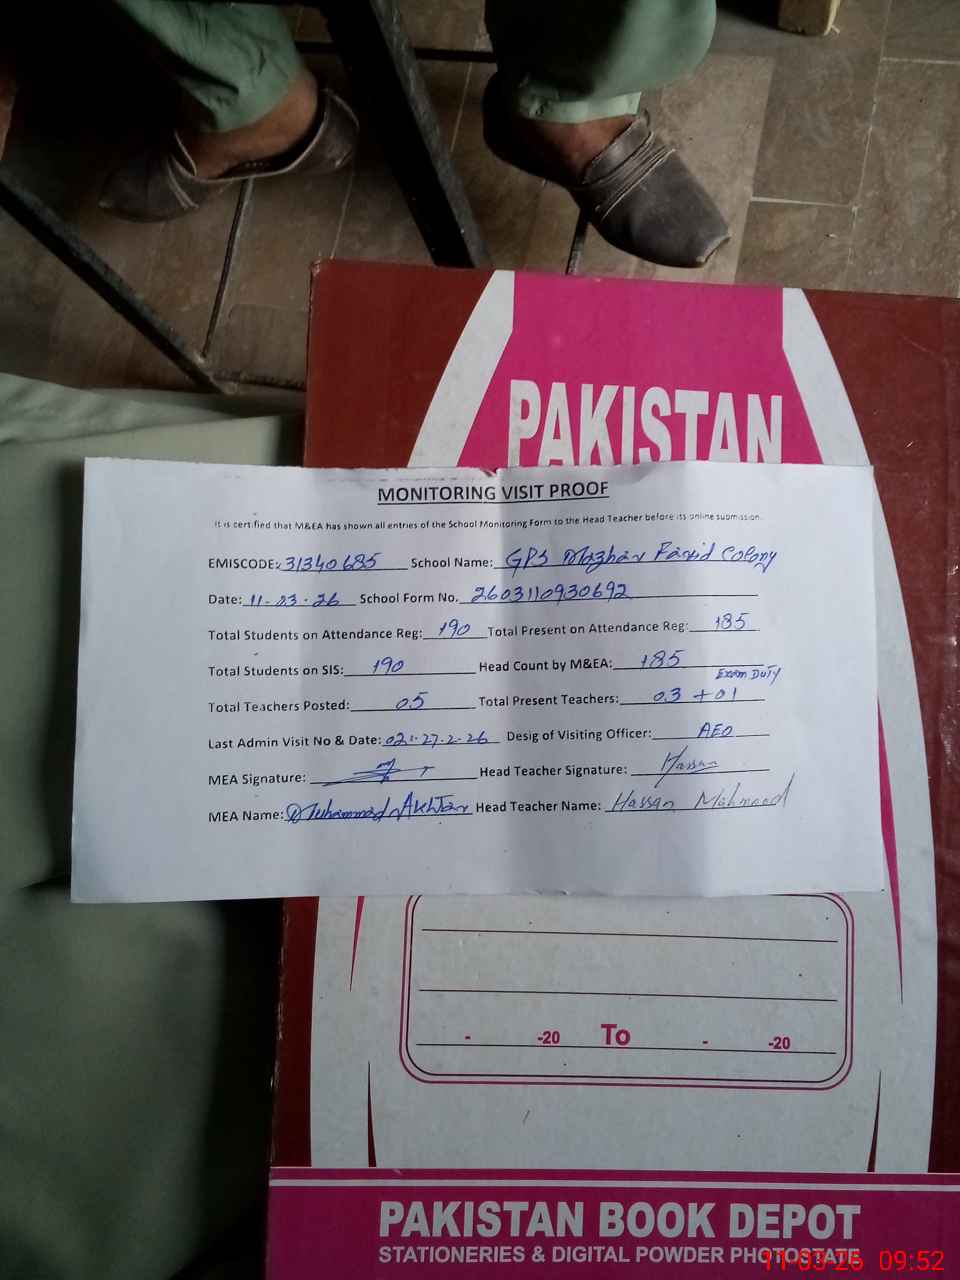 PAKISTAN
MONITORING VISIT PROOF
It is certified that M&EA has shown all entries of the School Monitoring Form to the Head Teacher before its online submission.
EMISCODE: 31340685 School Name: GPS Mazhar Farid Colony
Date: 11-03-26 School Form No. 2603110930692
Total Students on Attendance Reg: 190 Total Present on Attendance Reg: 185
Total Students on SIS: 190 Head Count by M&EA: 185
Exam Duty
Total Teachers Posted: 05 Total Present Teachers: 03 + 01
Last Admin Visit No & Date: 02, 27-2-26 Desig of Visiting Officer: AEO
MEA Signature: Head Teacher Signature: Hassan
MEA Name: Muhammad Akhtar Head Teacher Name: Hassan Mahmood
- -20 To - -20
PAKISTAN BOOK DEPOT
STATIONERIES & DIGITAL POWDER PHOTOSTATE
11-03-26 09:52